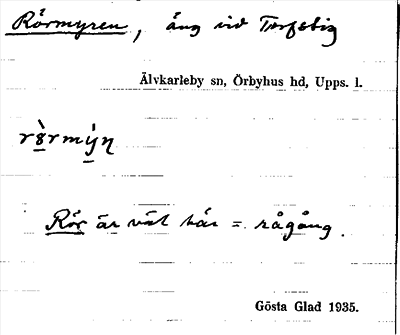 Rörmyren, äng vid Torfsbig
Älvkarleby sn, Örbyhus hd, Upps. l.
rö̀rmýn
Rör är väl här = rågång.
Gösta Glad 1935.